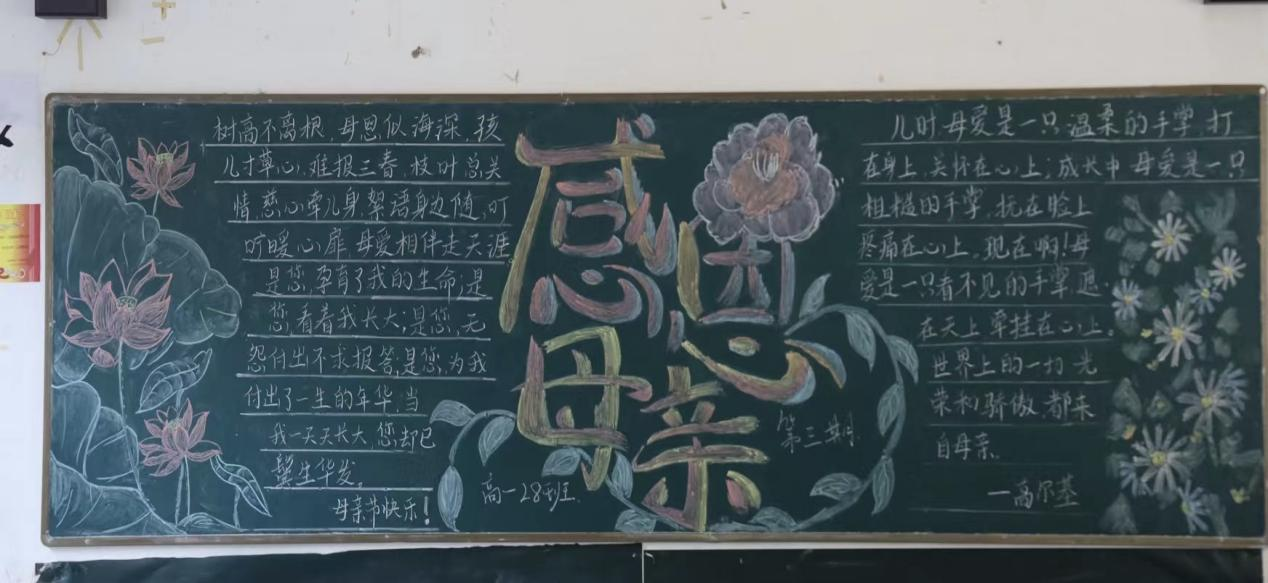 树高不离根，母恩似海深，孩
儿寸草心，难报三春，枝叶总关
情，慈心牵儿身，絮语身边随，叮
咛暖心扉，母爱相伴走天涯。
是您，孕育了我的生命；是
您，看着我长大；是您，无
怨付出不求报答；是您，为我
付出了一生的年华，当
我一天天长大，您却已
鬓生华发。
母亲节快乐！
感恩
母亲
高一28班
第三期
儿时，母爱是一只温柔的手掌，打
在身上，关怀在心上；成长中母爱是一只
粗糙的手掌，抚在脸上
疼痛在心上。现在啊！母
爱是一只看不见的手掌，遮
在天上牵挂在心上。
世界上的一切光
荣和骄傲，都来
自母亲。
—高尔基